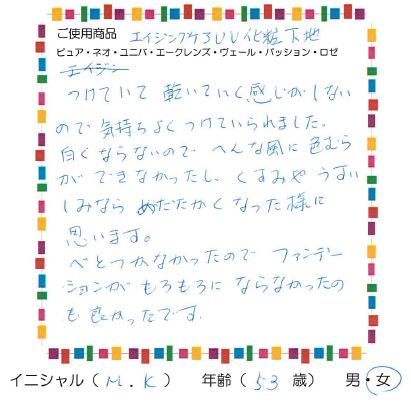 ご使用商品 エイジングケアUV化粧下地
ピュア・ネオ・ユニバ・エークレンズ・ヴェール・パッション・ロゼ
エイジン
つけていて 乾いていく感じがしない
ので 気持ちよくつけていられました。
白くならないので へんな風に色むら
ができなかったし、くすみや うすい
しみなら めだたなくなった様に
思います。
べとつかなかったので ファンデー
ションがもろもろに ならなかったの
も良かったです。
イニシャル（M.K） 年齢（53 歳） 男・女